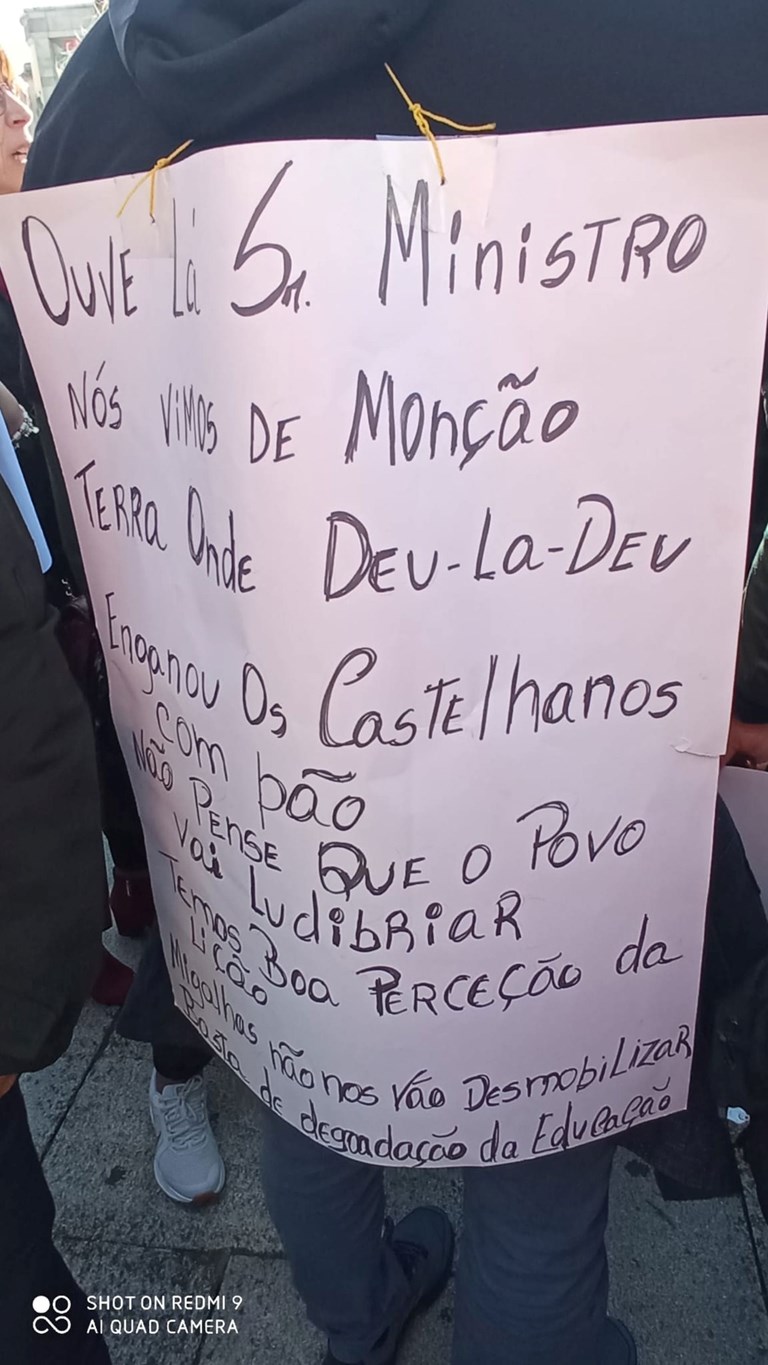 OUVE Lá Sr. MinisTRO
NÓS ViMOS DE MOnÇão
TERRA Onde DEU-La-DEU
Enganou Os CasTElhanos
com pão
Não PENSE QUE O POVO
Vai LudibRiaR
Temos Boa PERCEÇão da
Lição
Migalhas não nos Vão DesmobiLizaR
Basta de degradação da EducaÇão
SHOT ON REDMI 9
AI QUAD CAMERA